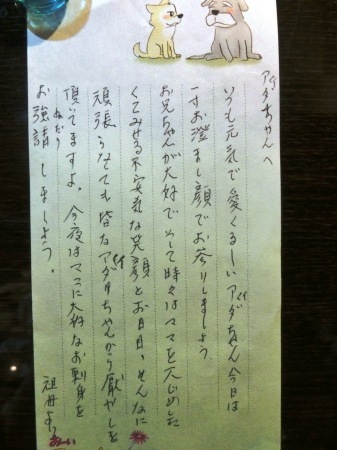 アダちゃんへ
いつも元気で愛くるしいアダちゃん今日は
一寸お澄まし顔でお参りしましょう。
お兄ちゃんが大好でそして時々はママを
くてみせる不安気な笑顔とお目目。そんなに
頑張らなくても皆なアダちゃんから癒やしを
頂いてますよ。今夜はママに大好なお刺身を
お強請しましょう。
ねだり
祖母より